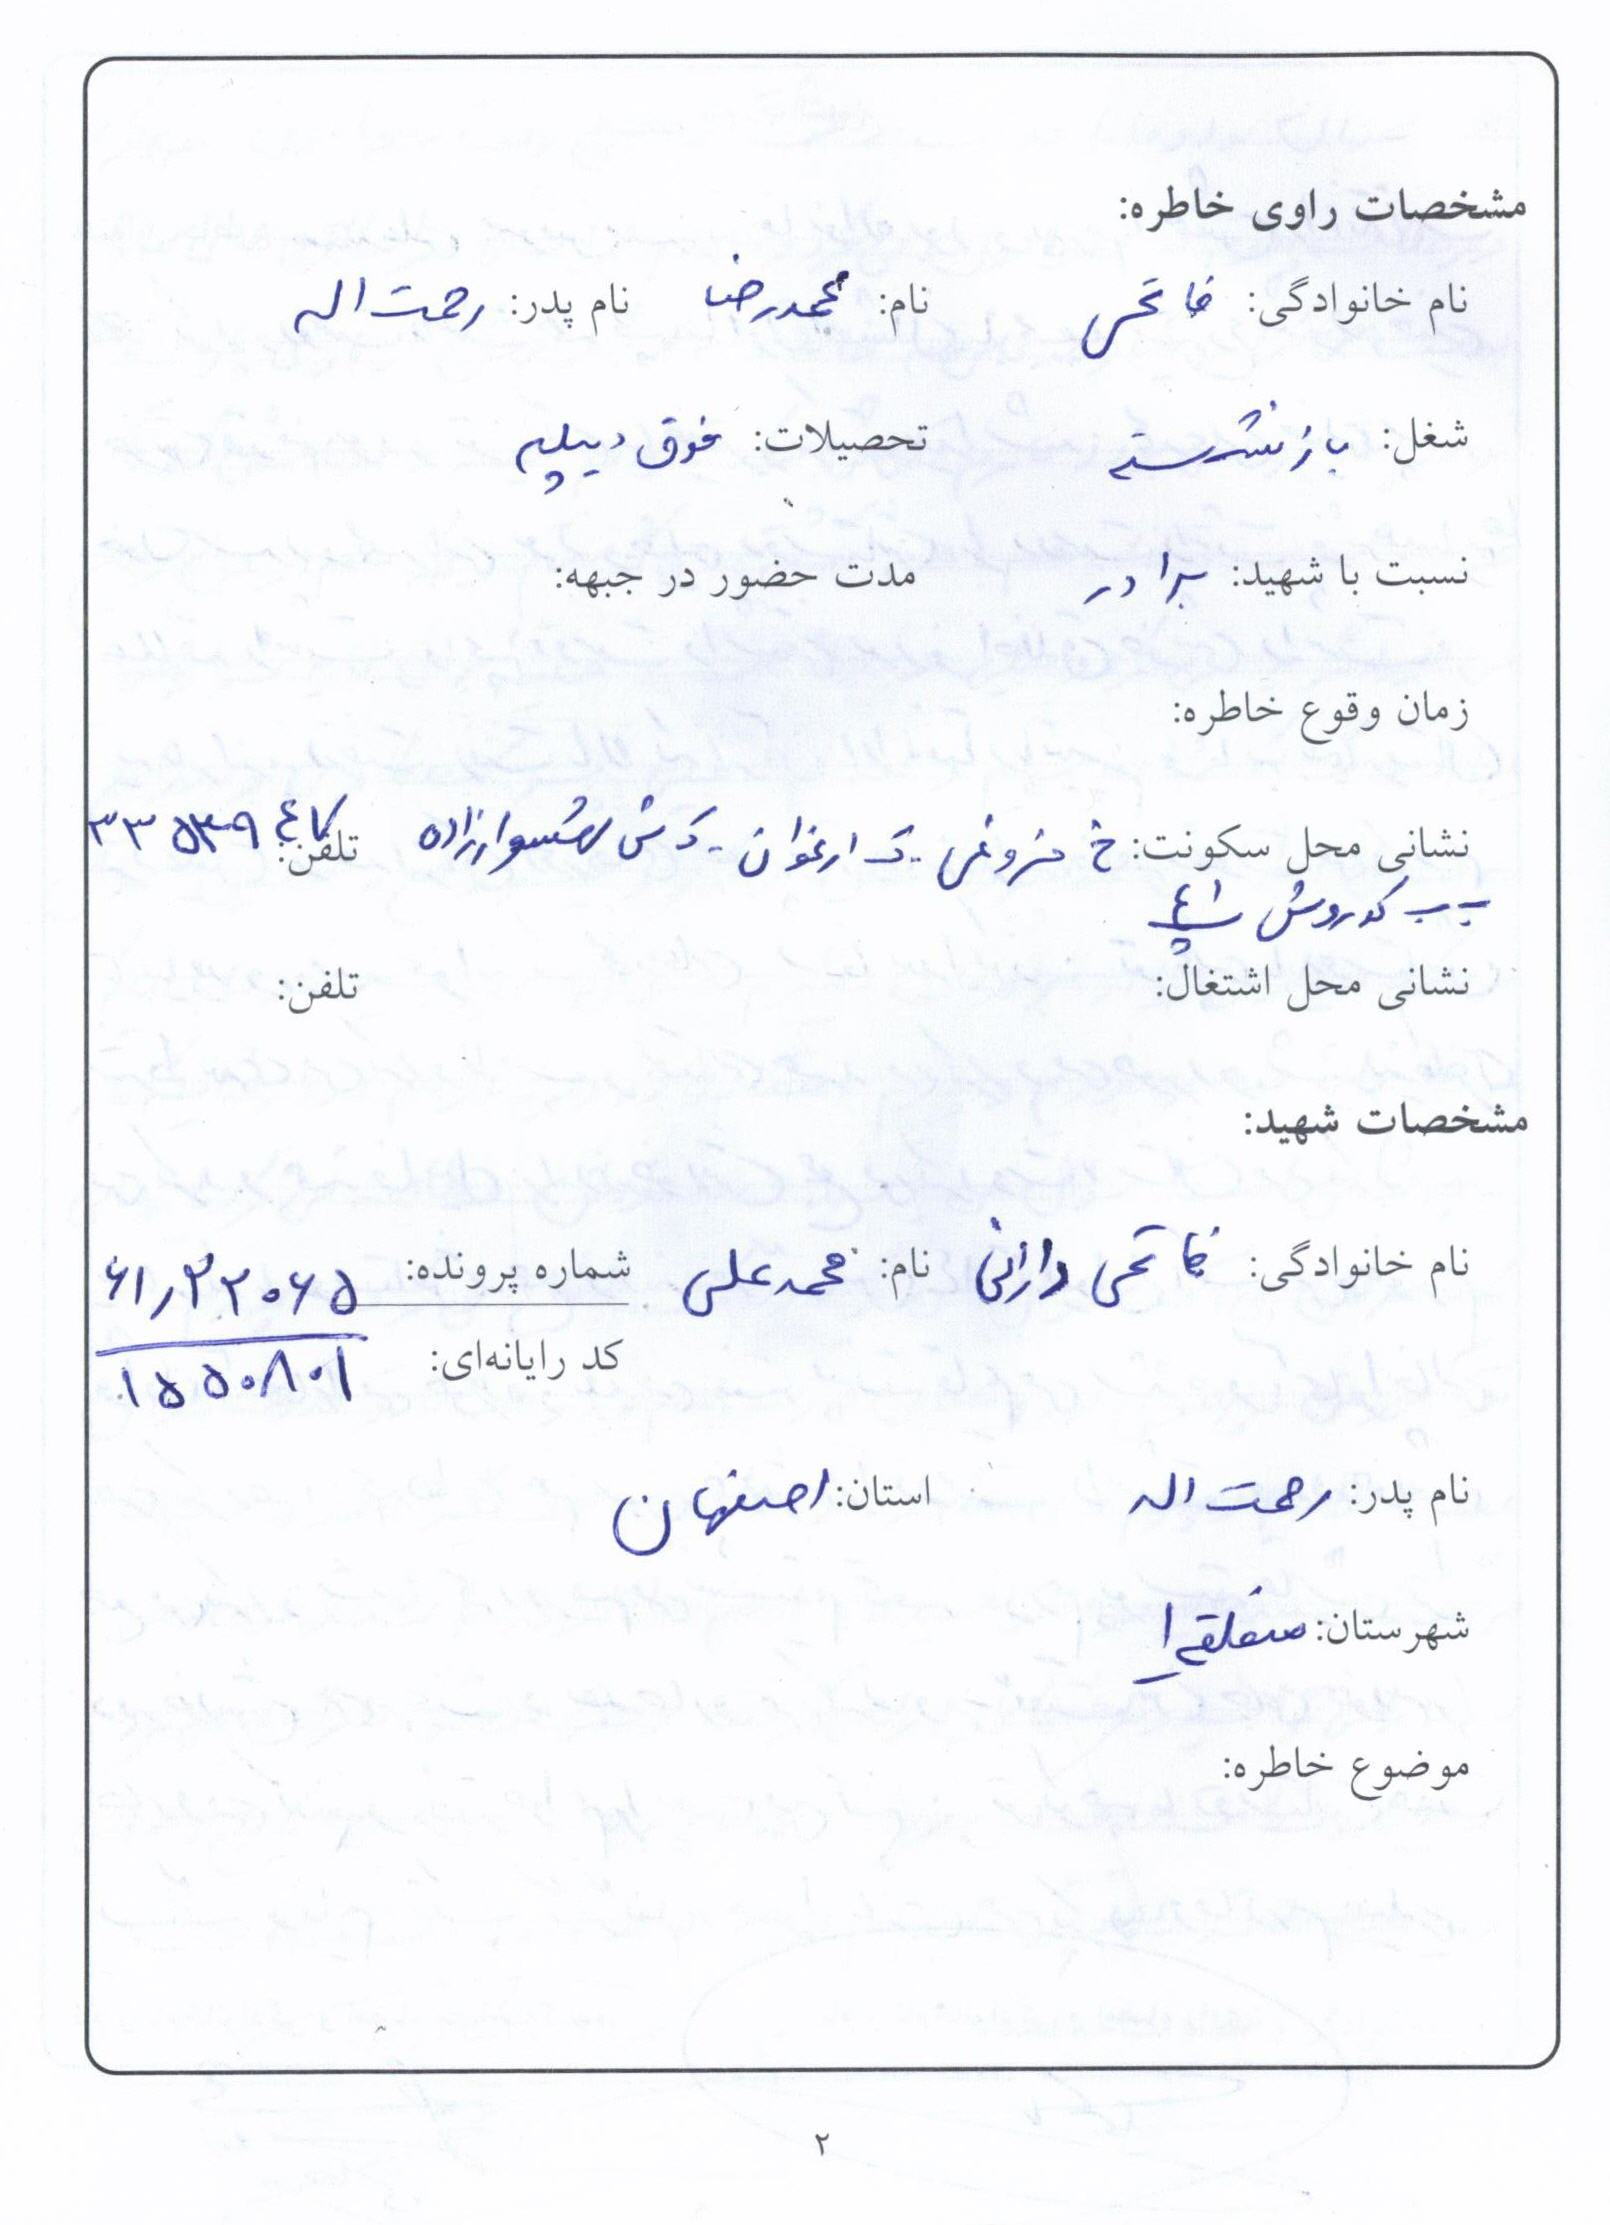 مشخصات راوی خاطره:
نام خانوادگی: فاتحی نام: محمدرضا نام پدر: رحمت اله
شغل: بازنشسته تحصیلات: فوق دیپلم
نسبت با شهید: برادر مدت حضور در جبهه:
زمان وقوع خاطره:
نشانی محل سکونت: خ فروغی - ک ارغوان - ک ش شهسوارزاده تلفن:
ب ب کوروش
نشانی محل اشتغال: تلفن:
مشخصات شهید:
نام خانوادگی: فاتحی دارانی نام: محمدعلی شماره پرونده: ۶۱٫۳۲۰۶۵
کد رایانه‌ای: ۱۵۵۰۸۰۱
نام پدر: رحمت اله استان: اصفهان
شهرستان: منطقه ۱
موضوع خاطره:
۲